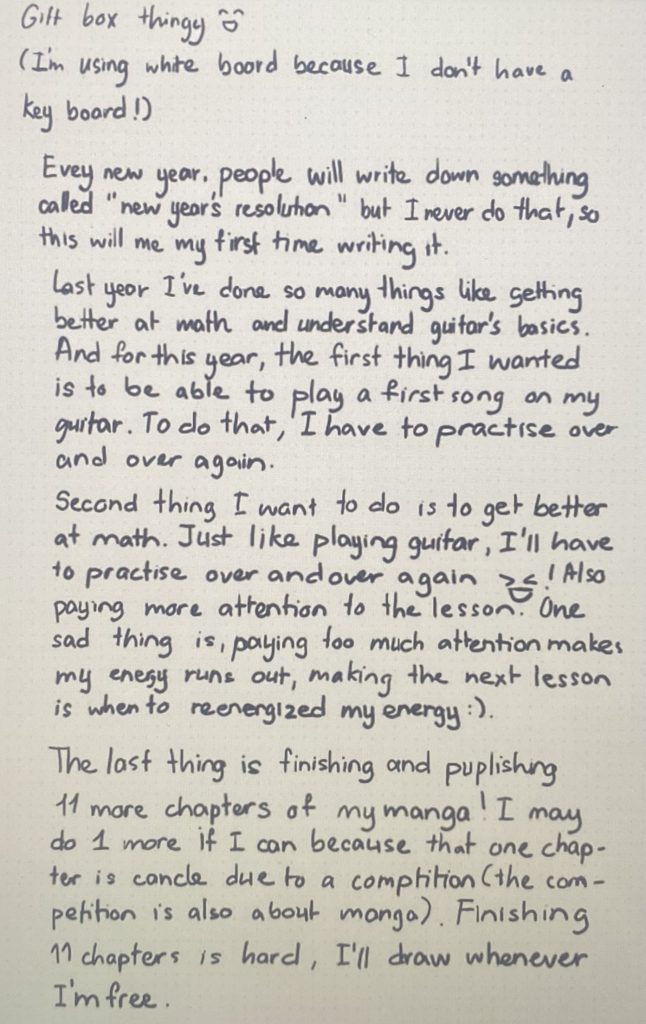 Gift box thingy
(I'm using white board because I don't have a
key board!)
Evey new year. people will write down something
called "new year's resolution" but I never do that, so
this will me my first time writing it.
Last year I've done so many things like getting
better at math and understand guitar's basics.
And for this year, the first thing I wanted
is to be able to play a first song on my
guitar. To do that, I have to practise over
and over again.
Second thing I want to do is to get better
at math. Just like playing guitar, I'll have
to practise over and over again ! Also
paying more attention to the lesson. One
sad thing is, paying too much attention makes
my enegy runs out, making the next lesson
is when to reenergized my energy :).
The last thing is finishing and puplishing
11 more chapters of my manga! I may
do 1 more if I can because that one chap-
ter is cancle due to a comptition (the com-
petition is also about manga). Finishing
11 chapters is hard, I'll draw whenever
I'm free.